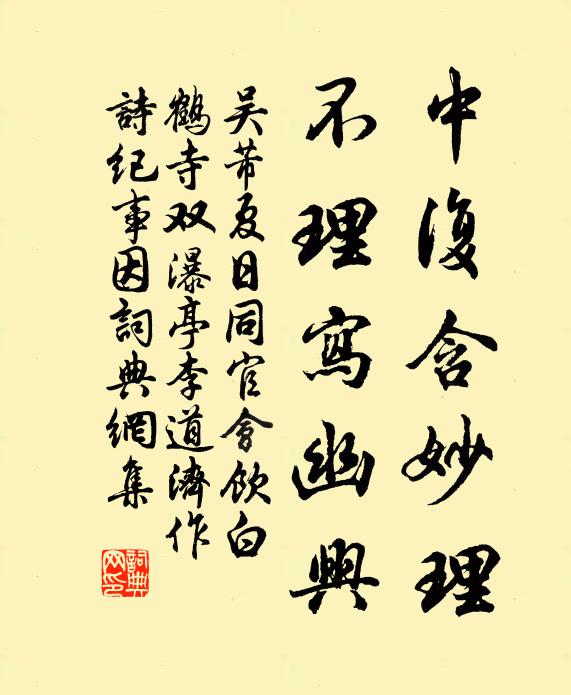 中復含妙理
不理寫幽興
吴芾夏日同官會飲白
鶴寺双瀑亭李道濟作
詩纪事因詞典網集
詞典网印